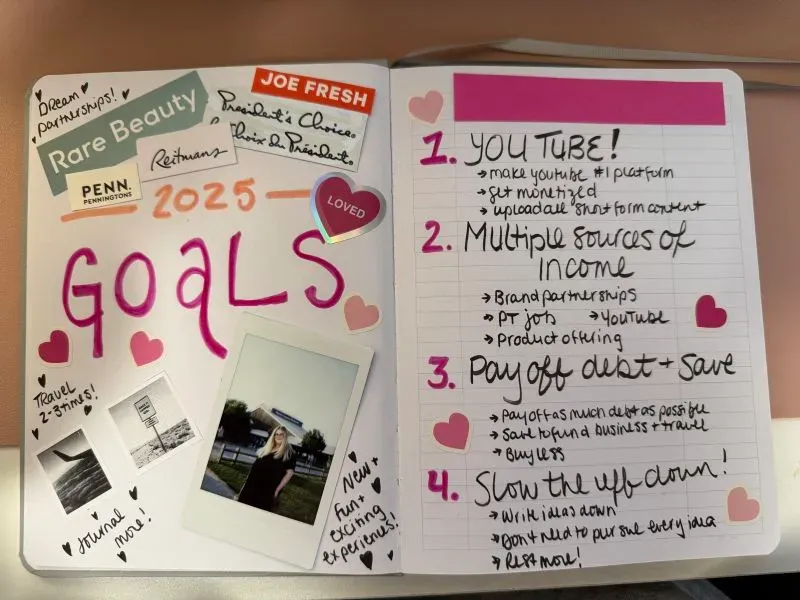 Dream
partnerships!
Rare Beauty
Reitmans
JOE FRESH
President's Choice
Choix du Président
PENN.
PENNINGTONS
2025
LOVED
GOALS
TRAVEL
2-3 times!
Journal
more!
New +
fun +
exciting
experiences!
1. YOUTUBE!
→ make youtube #1 platform
→ get monetized
→ upload all short form content
2. Multiple sources of
income
→ Brand partnerships
→ PT job → YouTube
→ Product offering
3. Pay off debt + save
→ Pay off as much debt as possible
→ Save to fund business + travel
→ Buy less
4. Slow the uff down!
→ Write ideas down
→ Don't need to pursue every idea
→ Rest more!